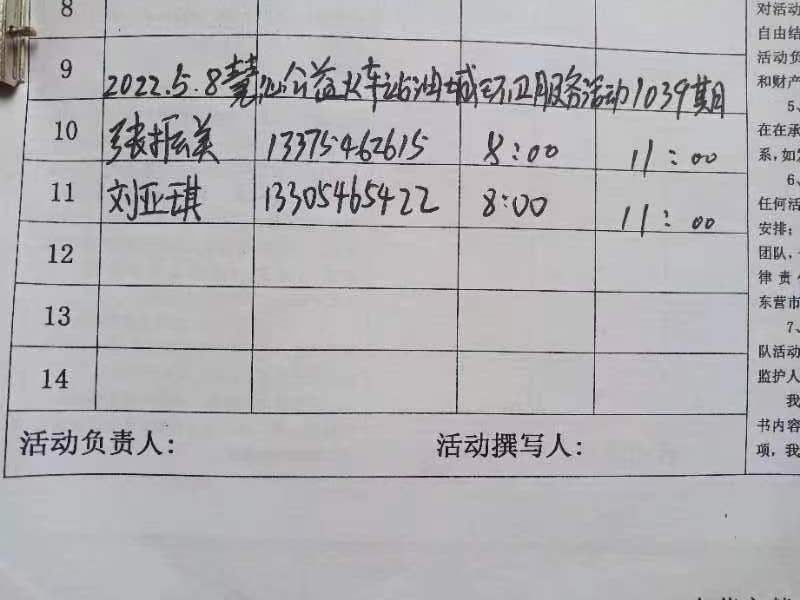 8
9 2022.5.8慧心公益火车站油城环卫服务活动1039期
10 张振美 13375462615 8:00 11:00
11 刘亚琪 13305465422 8:00 11:00
12
13
14
活动负责人: 活动撰写人:
对活动
自由结
活动负
和财产
5、
在在承
系,如发
6、
任何活
安排;
团队,
律责任
东营市
7、
队活动
监护人
我
书内容
项,我